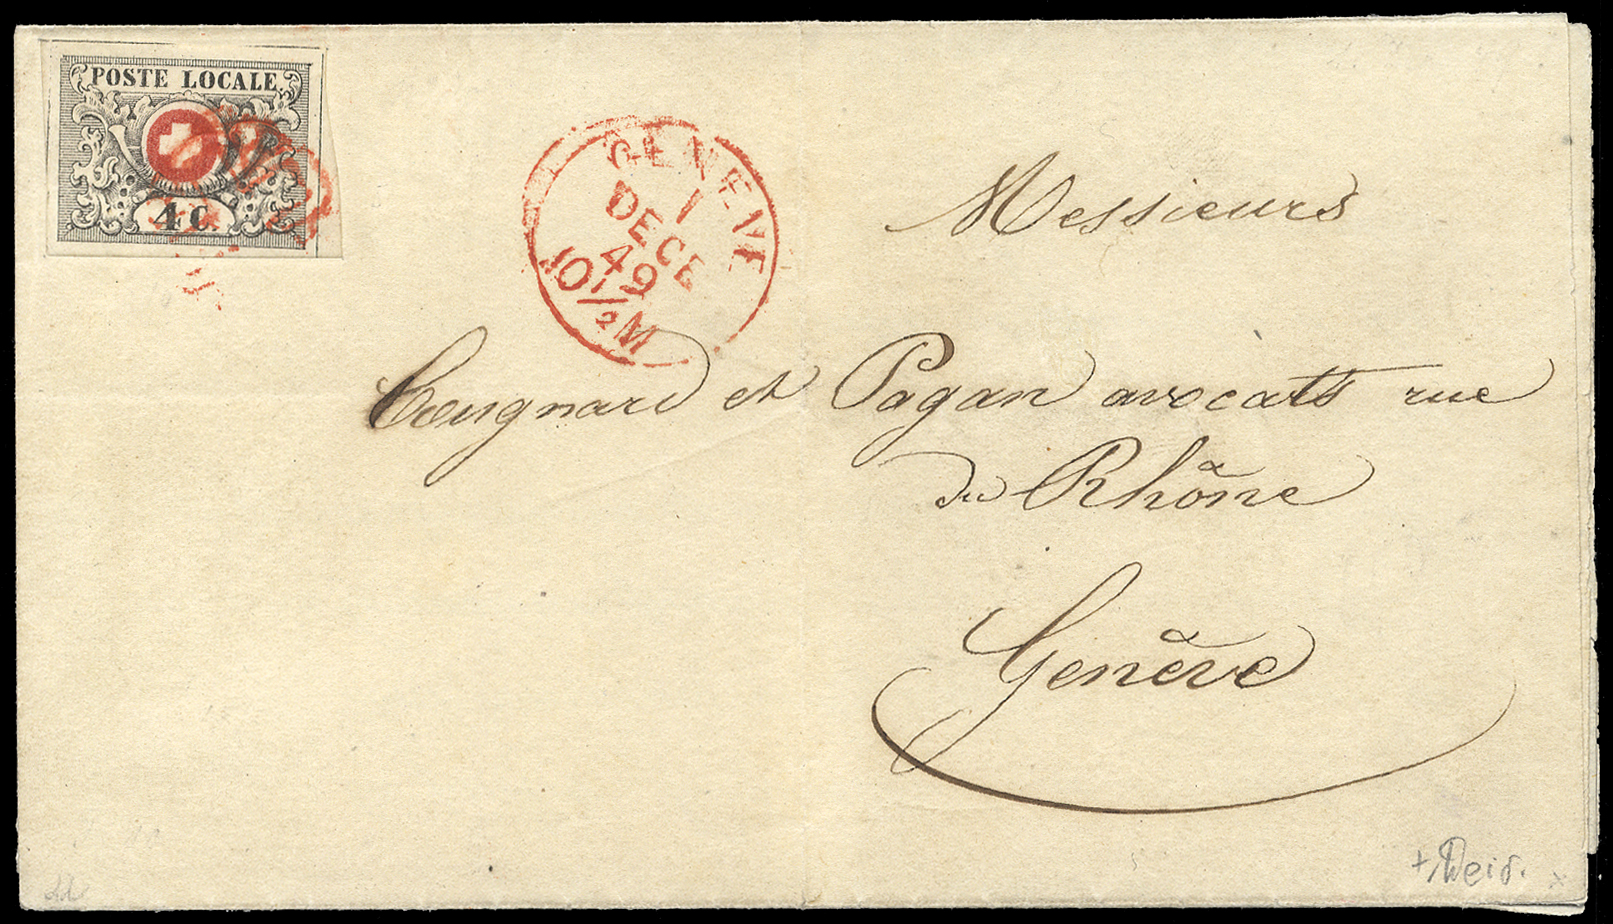 POSTE LOCALE
4 C.
GENEVE
1
DECE
49
10 1/2 M
Messieurs
Cougnard et Pagan avocats rue
du Rhône
Genève